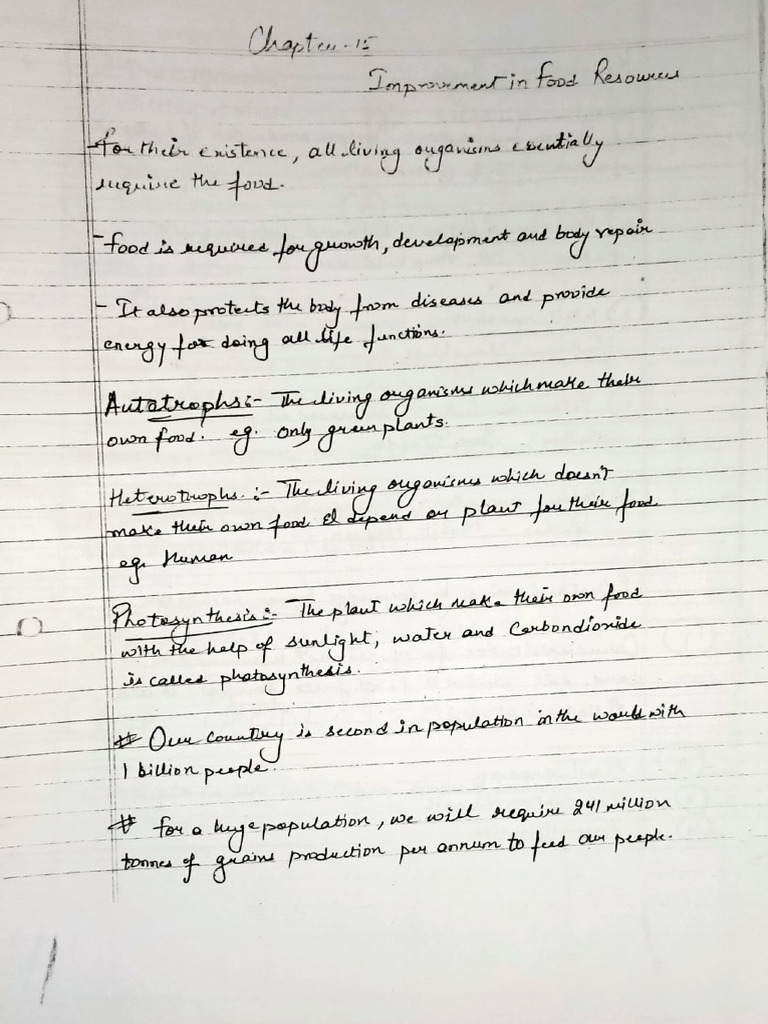 Chapter-15
Improvement in Food Resources
- For their existence, all living organisms essentially
require the food.
- Food is required for growth, development and body repair
- It also protects the body from diseases and provide
energy for doing all life functions.
Autatrophs:- The living organisms which make their
own food. eg. only green plants.
Heterotrophs :- The living organisms which doesn't
make their own food & depend on plant for their food
eg. Human
Photosynthesis:- The plant which make their own food
with the help of sunlight, water and Carbondioxide
is called photosynthesis.
# Our country is second in population in the world with
1 billion people.
# for a huge population, we will require 241 million
tonnes of grains production per annum to feed our people.